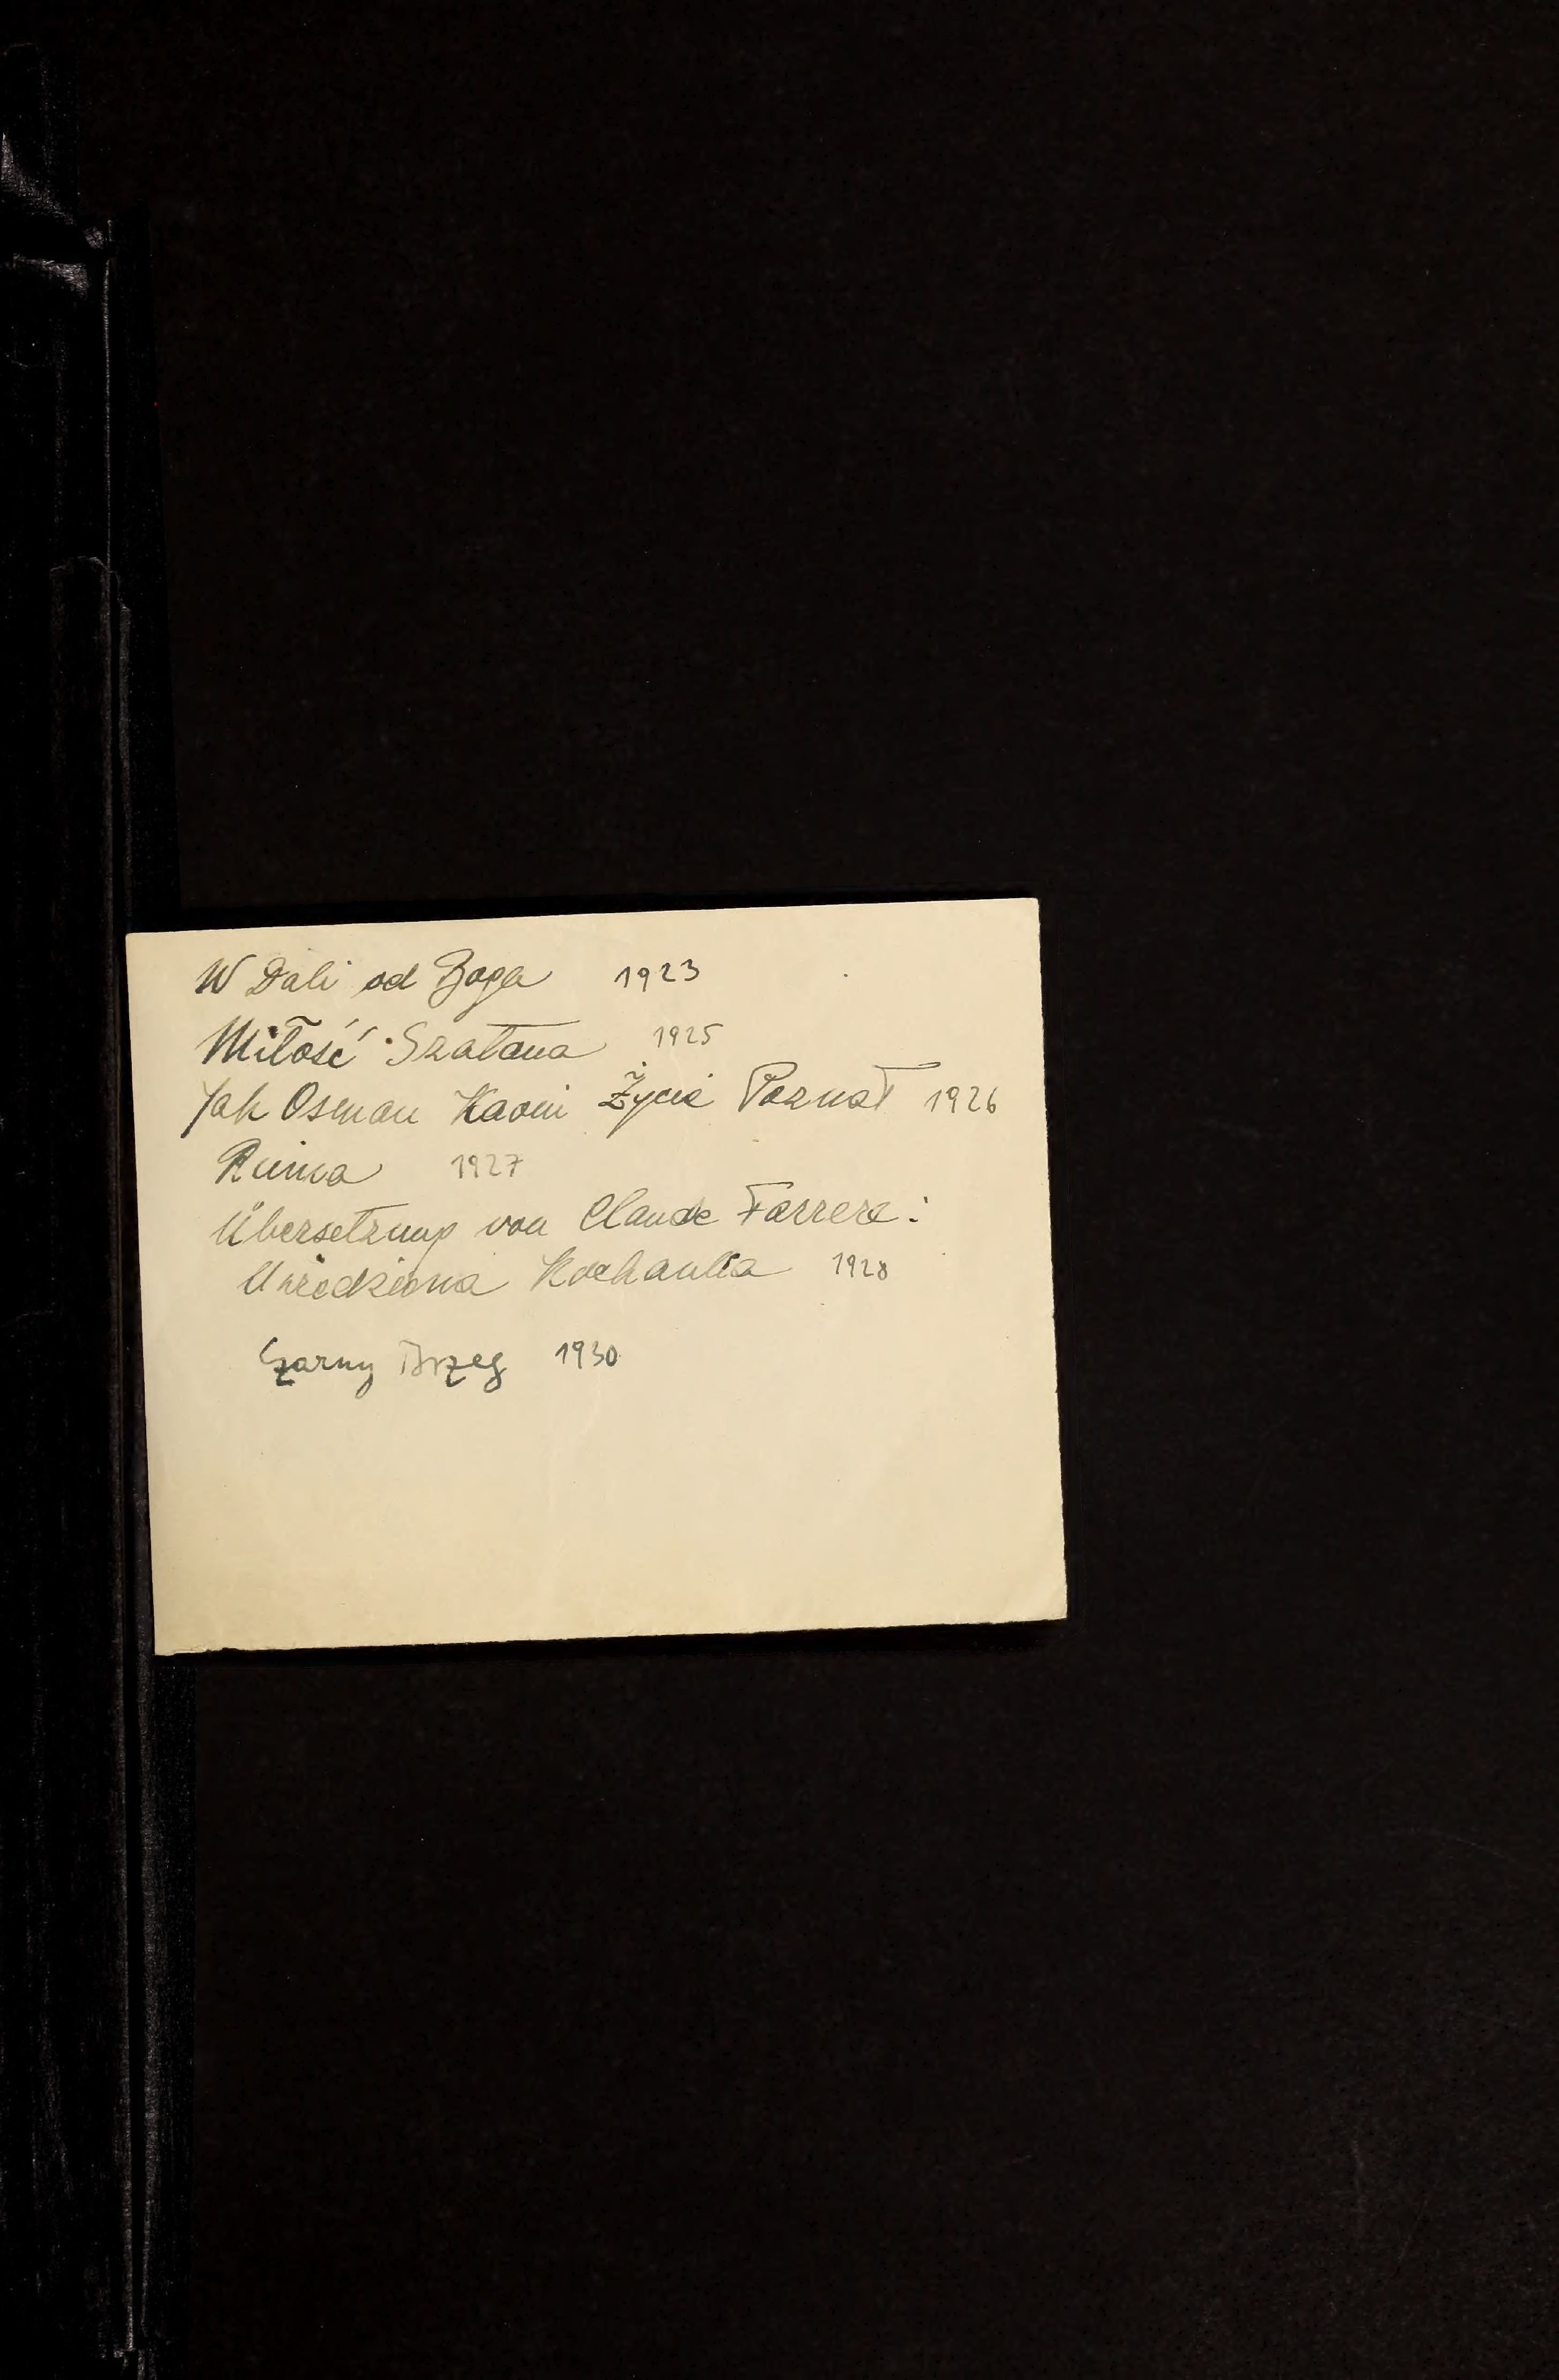 W Dali od Boga 1923
Miłość Szatana 1925
Jak Osman Kaomi Życie Poznał 1926
Ruina 1927
Übersetzung von Claude Farrere:
Urodziwna Kochanka 1928
Czarny Brzeg 1930